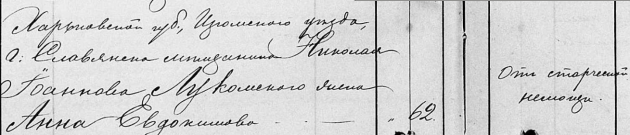 Харьковской губ., Изюмского уезда,
г. Славянска мещанина Николая
Іоаннова Лукомского жена
Анна Евдокимова — „ 62.
От старческой
немощи.